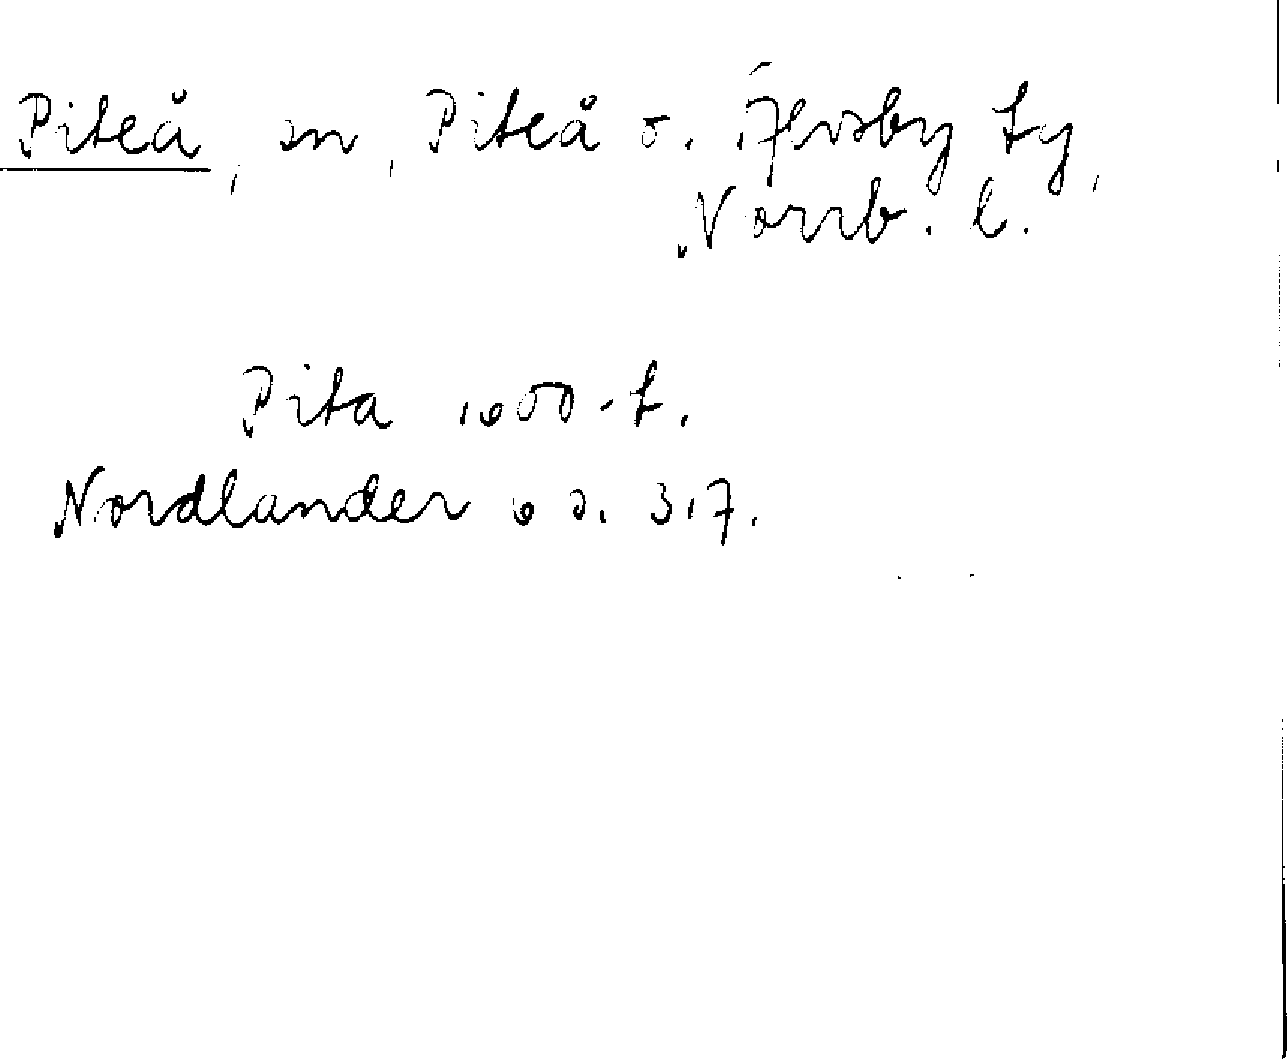 Piteå, sn, Piteå o. Älvsby tg,
Norrb. l.
Pita 1600-t.
Nordlander s. 317.